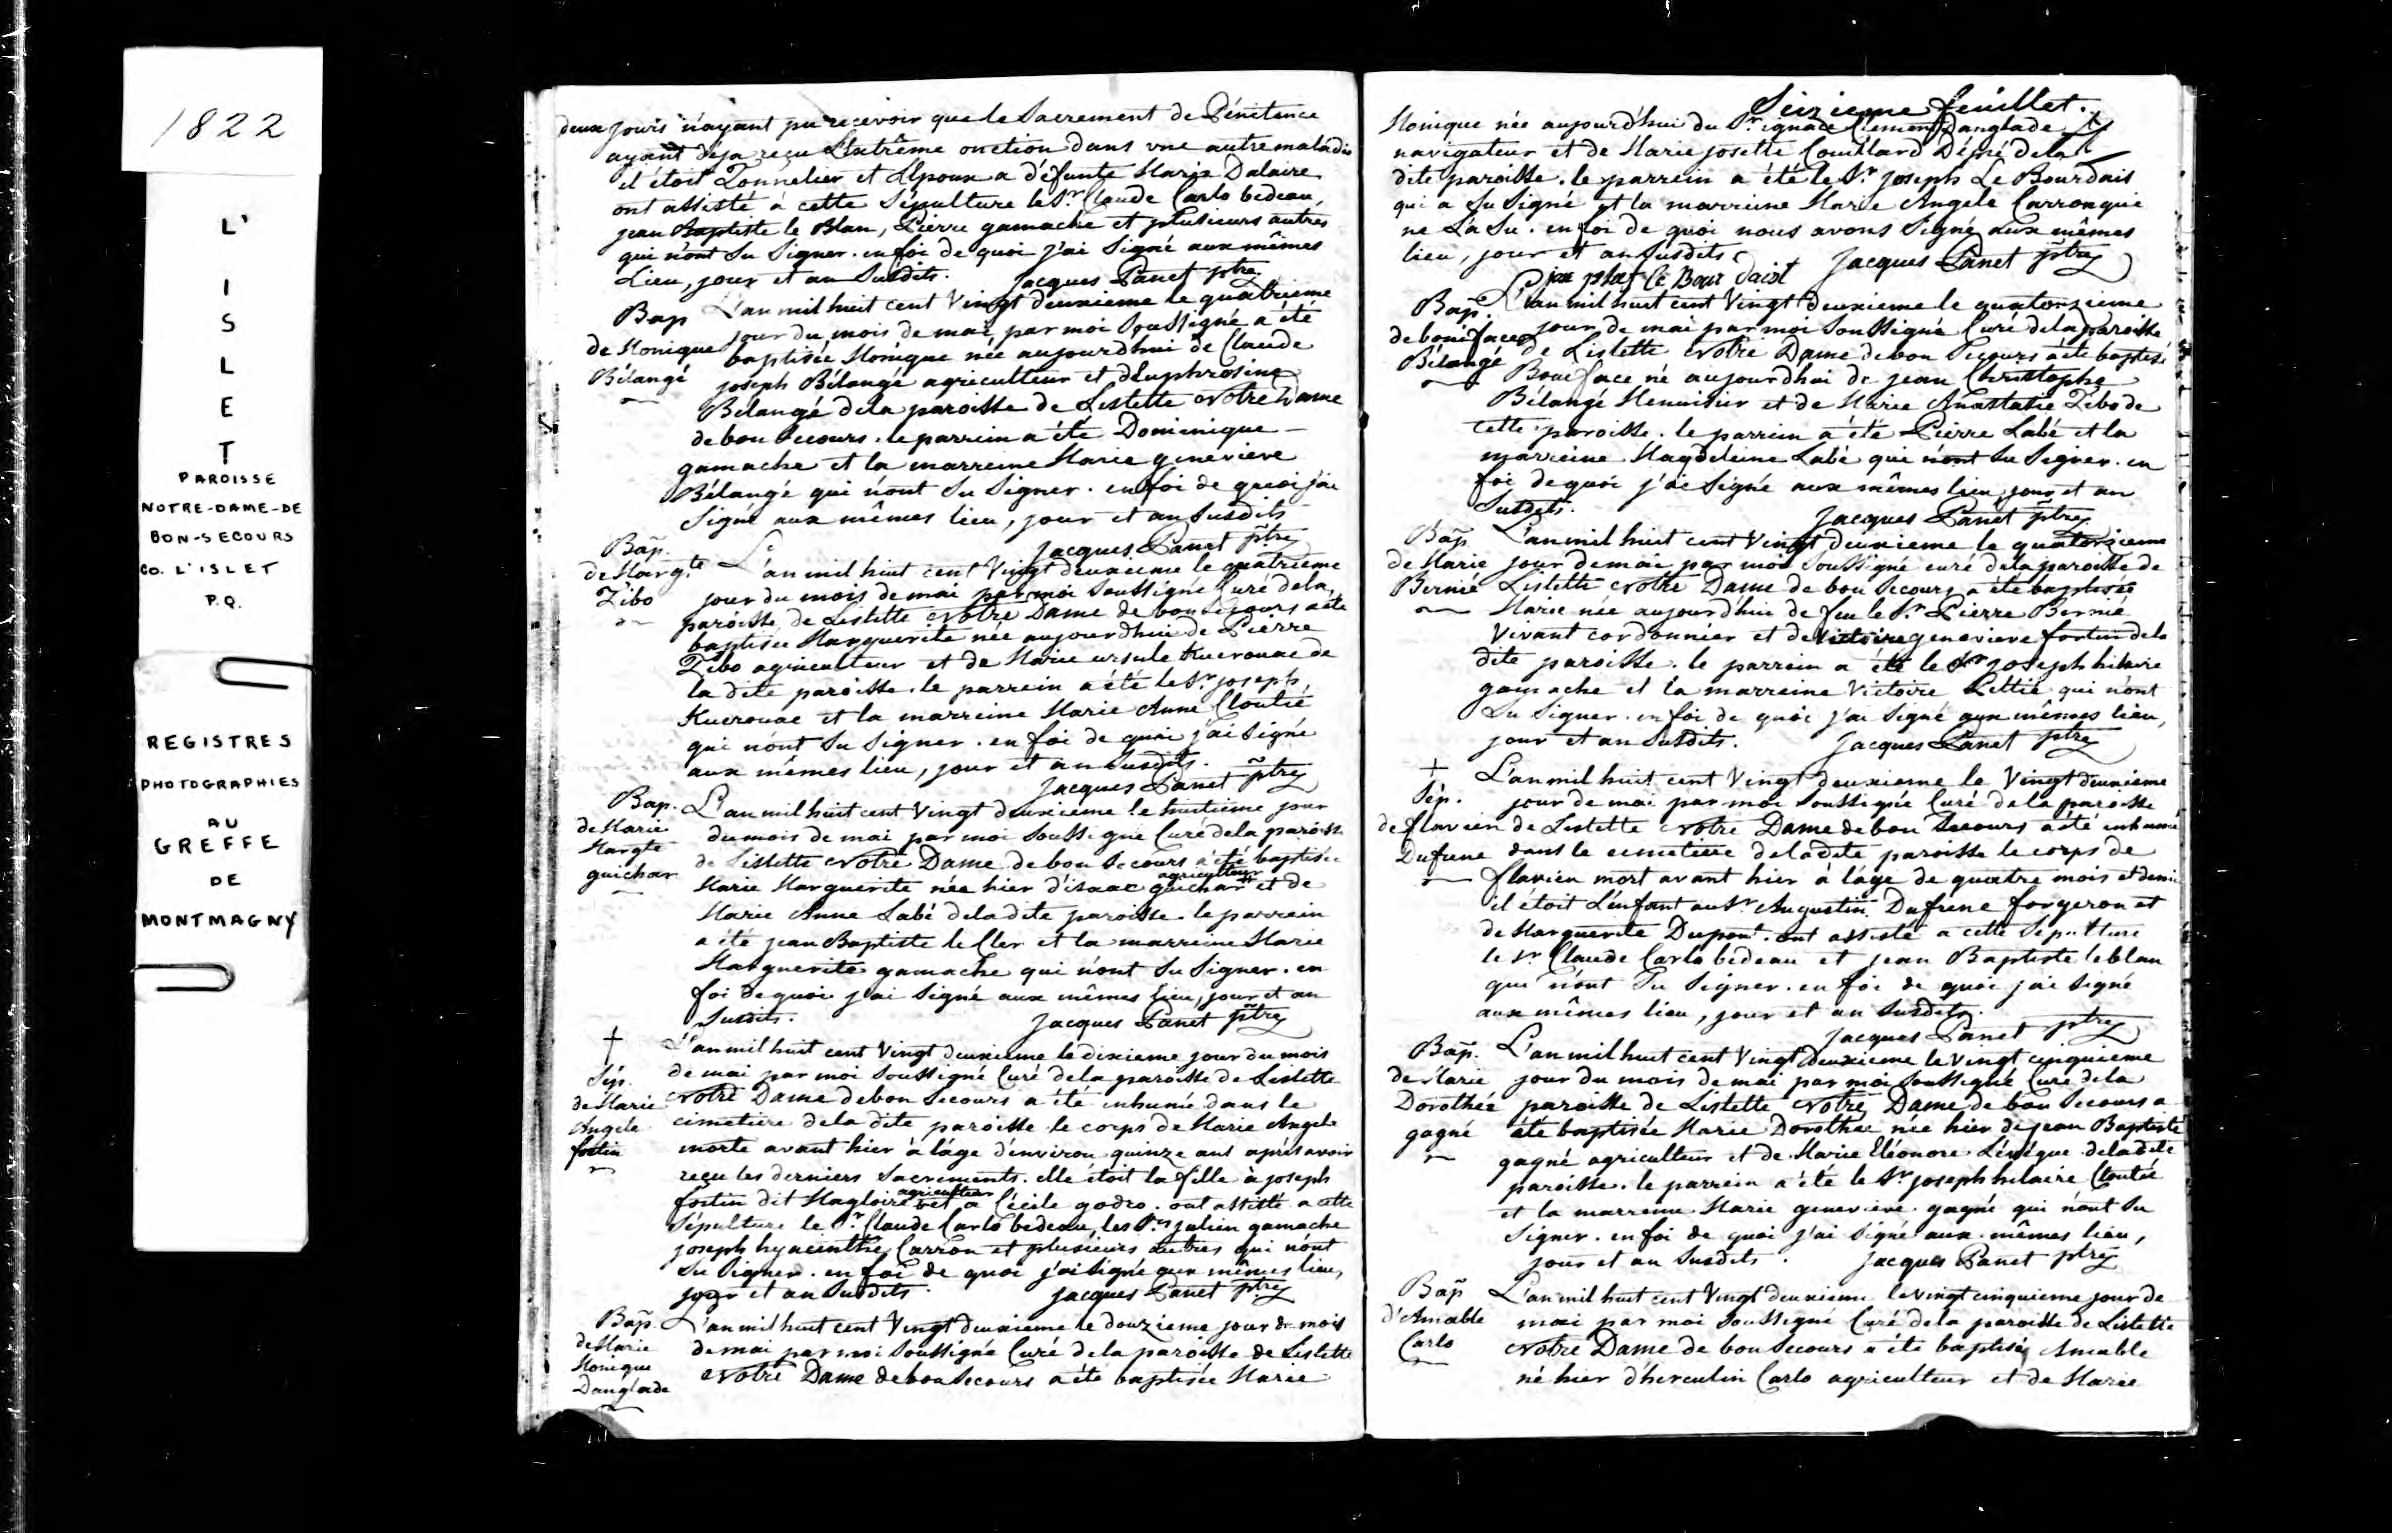 1822
L'
I
S
L
E
T
PAROISSE
NOTRE-DAME-DE
BON-SECOURS
CO. L'ISLET
P.Q.
REGISTRES
PHOTOGRAPHIES
AU
GREFFE
DE
MONTMAGNY
deux jours n'ayant pu recevoir que le Sacrement de Pénitence
ayant déja reçu L'extrême onction dans une autre maladie
il étoit Tonnelier et Epoux a défunte Marie Dalaire
ont assisté a cette Sépulture le Sr. Claude Carlo bedeau,
jean Baptiste le Blan, Pierre gamache et plusieurs autres
qui n'ont Su Signer. en foi de quoi j'ai Signé aux mêmes
Lieu, jour et an Susdits. Jacques Panet ptre
Bap
de Monique
Bélangé
L'an mil huit cent Vingt deuxieme le quatrieme
jour du mois de mai par moi Soussigné a été
baptisée Monique née aujourdhui de Claude
joseph Bélangé agriculteur et d'Euphrosine
Bélangé de la paroisse de Lislette Notre Dame
de bon Secours. le parrein a été Dominique
gamache et la marreine Marie genevieve
Bélangé qui n'ont Su Signer. en foi de quoi j'ai
Signé aux mêmes lieu, jour et an Susdits
Jacques Panet ptre
Bap.
de Margte
Zibo
L'an mil huit cent Vingt deuxieme le quatrieme
jour du mois de mai par moi Soussigné Curé de la
paroisse de Lislette Notre Dame de bon Secours a été
baptisée Marguerite née aujourdhui de Pierre
Zibo agriculteur et de Marie ursule Kuerouac de
la dite paroisse. le parrein a été le Sr. joseph
Kuerouac et la marreine Marie Anne Cloutié
qui n'ont Su Signer. en foi de quoi j'ai Signé
aux mêmes lieu, jour et an Susdits.
Jacques Panet ptre
Bap.
de Marie
Margte
guichar
L'an mil huit cent Vingt deuxieme le huitieme jour
du mois de mai par moi Soussigné Curé de la paroisse
de Lislette Notre Dame de bon Secours a été baptisée
Marie Marguerite née hier d'isaac guichar agriculteur et de
Marie Anne Labé de la dite paroisse. le parrein
a été jean Baptiste le Cler et la marreine Marie
Marguerite gamache qui n'ont Su Signer. en
foi de quoi j'ai Signé aux mêmes lieu, jour et an
Susdits. Jacques Panet ptre
†
Sép.
de Marie
Angele
fortin
L'an mil huit cent Vingt deuxieme le dixieme jour du mois
de mai par moi Soussigné Curé de la paroisse de Lislette
Notre Dame de bon Secours a été inhumé dans le
cimetiere de la dite paroisse le corps de Marie Angele
morte avant hier à l'âge d'environ quinze ans aprés avoir
reçu les derniers Sacrements. elle étoit la fille à joseph
fortin dit Magloire agriculteur et a Cécile godro. ont assisté a cette
Sépulture le Sr. Claude Carlo bedeau, les Srs julien gamache
joseph hyacinthe Carron et plusieurs autres qui n'ont
Su Signer. en foi de quoi j'ai Signé aux mêmes lieu,
jour et an Susdits. Jacques Panet ptre
Bap.
de Marie
Monique
Danglade
L'an mil huit cent Vingt deuxieme le douzieme jour du mois
de mai par moi Soussigné Curé de la paroisse de Lislette
Notre Dame de bon Secours a été baptisée Marie
Seizieme feuillet.
Monique née aujourdhui du Sr. ignace Clement Danglade
navigateur et de Marie josette Couillard Dépré de la
dite paroisse. le parrein a été le Sr. joseph Le Bourdais
qui a Su Signé et la marreine Marie Angele Carron qui
ne L'a Su. en foi de quoi nous avons Signé aux mêmes
lieu, jour et an Susdits. Jacques Panet ptre
Le Bour daist
Bap.
de boniface
Bélangé
L'an mil huit cent Vingt deuxieme le quatorzieme
jour de mai par moi Soussigné Curé de la paroisse
de Lislette Notre Dame de bon Secours a été baptisé
Boniface né aujourdhui de jean Christophe
Bélangé Menuisier et de Marie Anastasie Zibo de
cette paroisse. le parrein a été Pierre Labé et la
marreine Magdeleine Labé qui n'ont Su Signer. en
foi de quoi j'ai Signé aux mêmes lieu, jour et an
Susdits. Jacques Panet ptre
Bap
de Marie
Bernié
L'an mil huit cent Vingt deuxieme le quatorzieme
jour de mai par moi Soussigné curé de la paroisse de
Lislette Notre Dame de bon Secours a été baptisée
Marie née aujourdhui de feu le Sr. Pierre Bernié
Vivant cordonnier et de Victoire genevieve fortin de la
dite paroisse. le parrein a été le Sr joseph hilaire
gamache et la marreine Victoire Lettié qui n'ont
Su Signer. en foi de quoi j'ai Signé aux mêmes lieu,
jour et an Susdits. Jacques Panet ptre
†
Sép.
de flavien
Dufrene
L'an mil huit cent Vingt deuxieme le Vingt deuxieme
jour de mai par moi Soussigné Curé de la paroisse
de Lislette Notre Dame de bon Secours a été inhumé
dans le cimetiere de la dite paroisse le corps de
flavien mort avant hier à l'âge de quatre mois et demi
il étoit L'enfant au Sr. Augustin Dufrene forgeron et
de Marguerite Dupont. ont assisté a cette Sepulture
le Sr Claude Carlo bedeau et jean Baptiste le blan
qui n'ont Su Signer. en foi de quoi j'ai Signé
aux mêmes lieu, jour et an Susdits.
Jacques Panet ptre
Bap.
de Marie
Dorothée
gagné
L'an mil huit cent Vingt deuxieme le vingt cinquieme
jour du mois de mai par moi Soussigné Curé de la
paroisse de Lislette Notre Dame de bon Secours a
été baptisée Marie Dorothée née hier de jean Baptiste
gagné agriculteur et de Marie Eléonore Lévêque de la dite
paroisse. le parrein a été le Sr. joseph hilaire Cloutié
et la marreine Marie genevieve gagné qui n'ont Su
Signer. en foi de quoi j'ai Signé aux mêmes lieu,
jour et an Susdits. Jacques Panet ptre
Bap
d'Amable
Carlo
L'an mil huit cent Vingt deuxieme le vingt cinquieme jour de
mai par moi Soussigné Curé de la paroisse de Lislette
Notre Dame de bon Secours a été baptisé Amable
né hier d'herculin Carlo agriculteur et de Marie